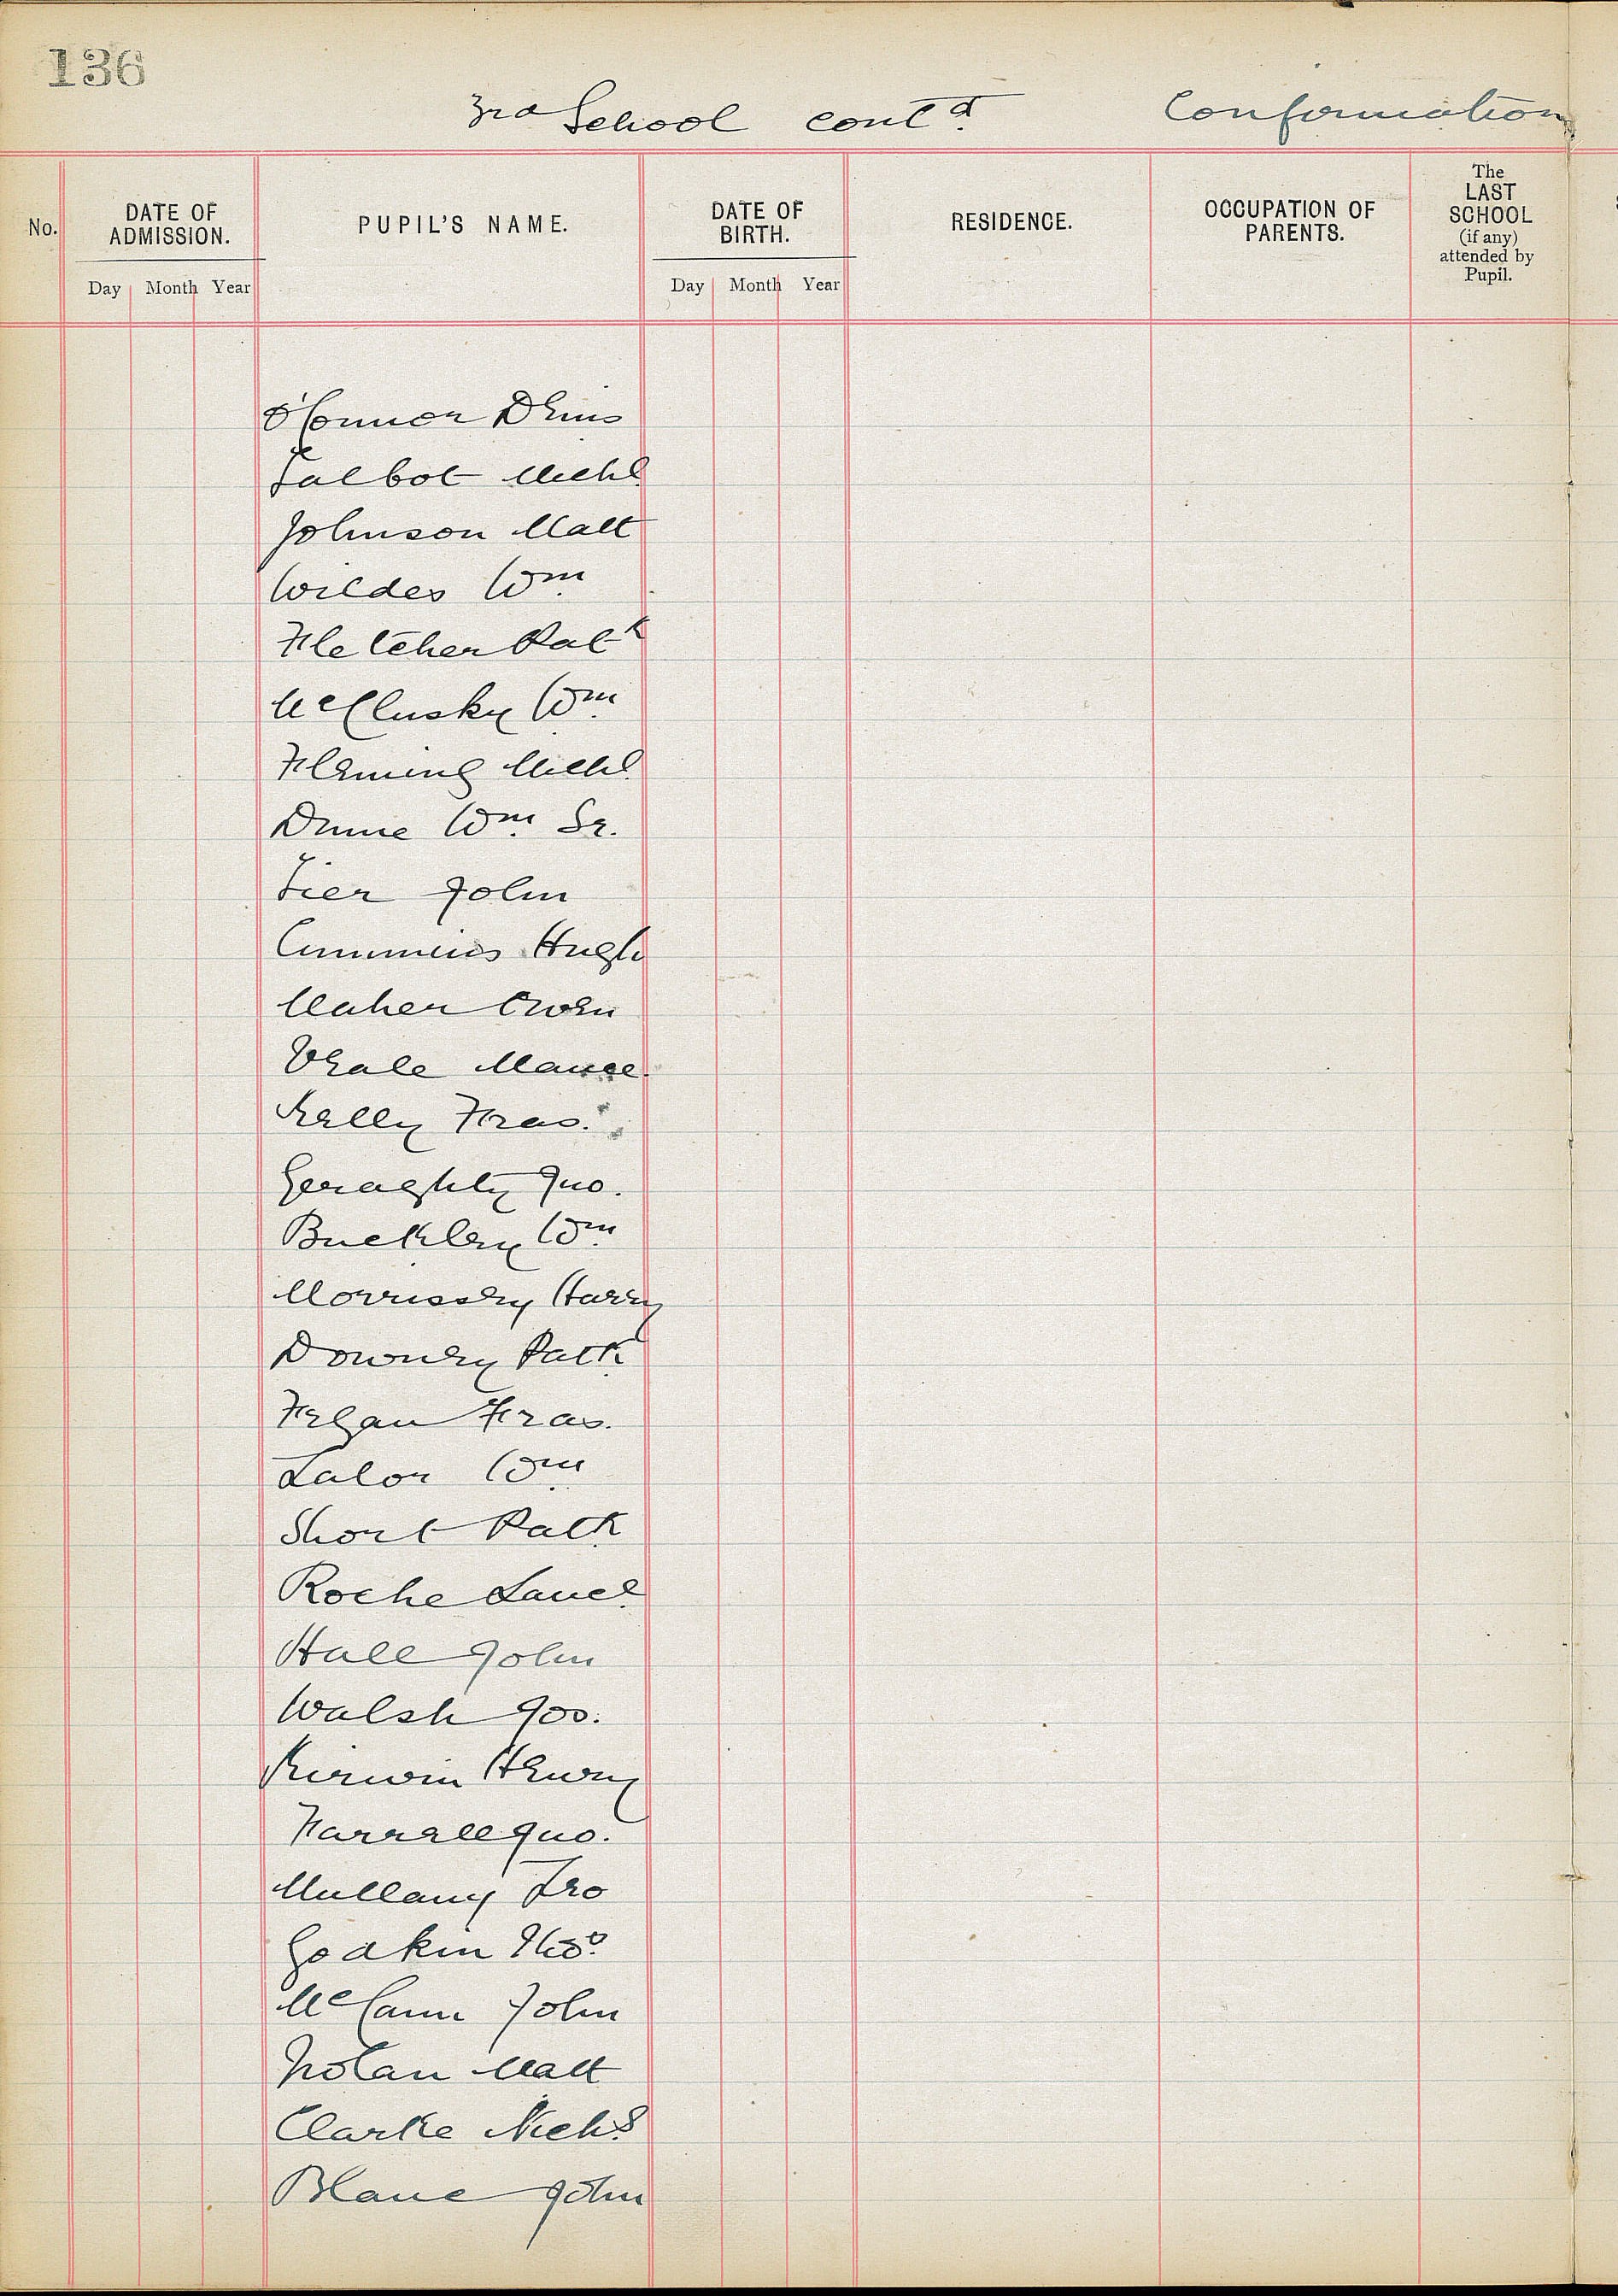 136
3rd School contd. Confirmation
No.
DATE OF ADMISSION.
Day Month Year
PUPIL'S NAME.
DATE OF BIRTH.
Day Month Year
RESIDENCE.
OCCUPATION OF PARENTS.
The LAST SCHOOL (if any) attended by Pupil.
O'Connor Denis
Talbot Michl.
Johnson Matt
Wildes Wm.
Fletcher Patk
McClusky Wm.
Fleming Michl.
Dunne Wm. Sr.
Tier John
Cummins Hugh
Maher Owen
Veale
Kelly Fras.
Geraghty Jno.
Buckley Wm.
Morrissey Harry
Downey Patk.
Fegan Fras.
Lalor Wm.
Short Patk.
Roche Laurce.
Hall John
Walsh Jos.
Kirwin Henry
Farrell Jno.
Mullany Leo
Godkin Thos.
McCann John
Nolan Matt
Clarke Nichs.
Blane John